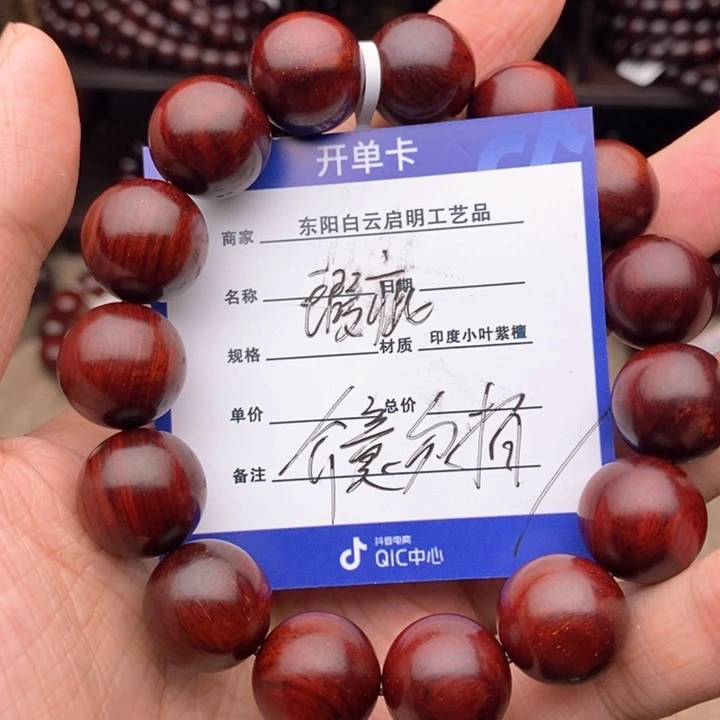 开单卡
商家 东阳白云启明工艺品
名称 瑕疵 日期
规格 材质 印度小叶紫檀
单价 总价
备注 介意勿拍
抖音电商
QIC中心